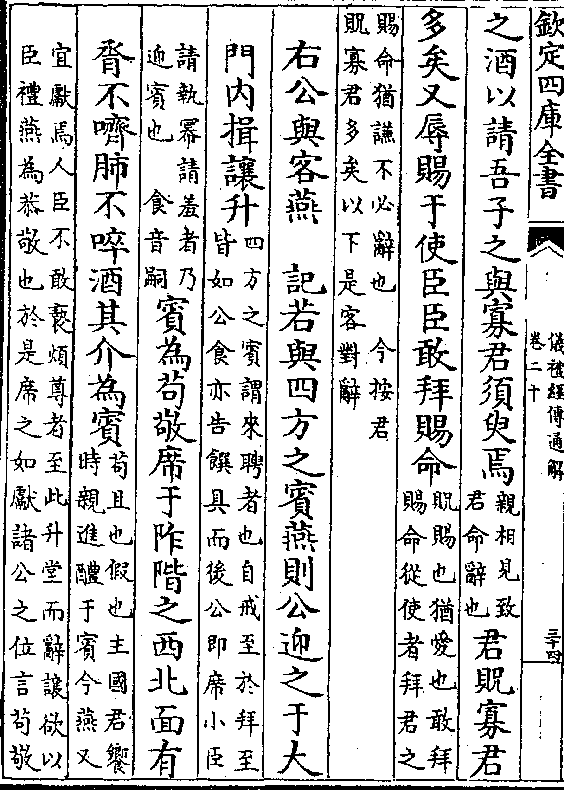 欽定四庫全書
儀禮經傳通解
卷二十
三十四
之酒以請吾子之與寡君須臾焉
親相見致
君命辭也
君貺寡君
多矣又辱賜于使臣臣敢拜賜命
貺賜也猶愛也敢拜
賜命從使者拜君之
賜命猶謙不必辭也 今按君
貺寡君多矣以下是客對辭
右公與客燕 記若與四方之賓燕則公迎之于大
門内揖讓升
四方之賓謂來聘者也自戒至於拜至
皆如公食亦告饌具而後公即席小臣
請執冪請羞者乃
迎賓也 食音嗣
賓為苟敬席于阼階之西北面有
脀不嚌肺不啐酒其介為賓
苟且也假也主國君饗
時親進醴于賓今燕又
宜獻焉人臣不敢褻煩尊者至此升堂而辭讓欲以
臣禮燕為恭敬也於是席之如獻諸公之位言苟敬